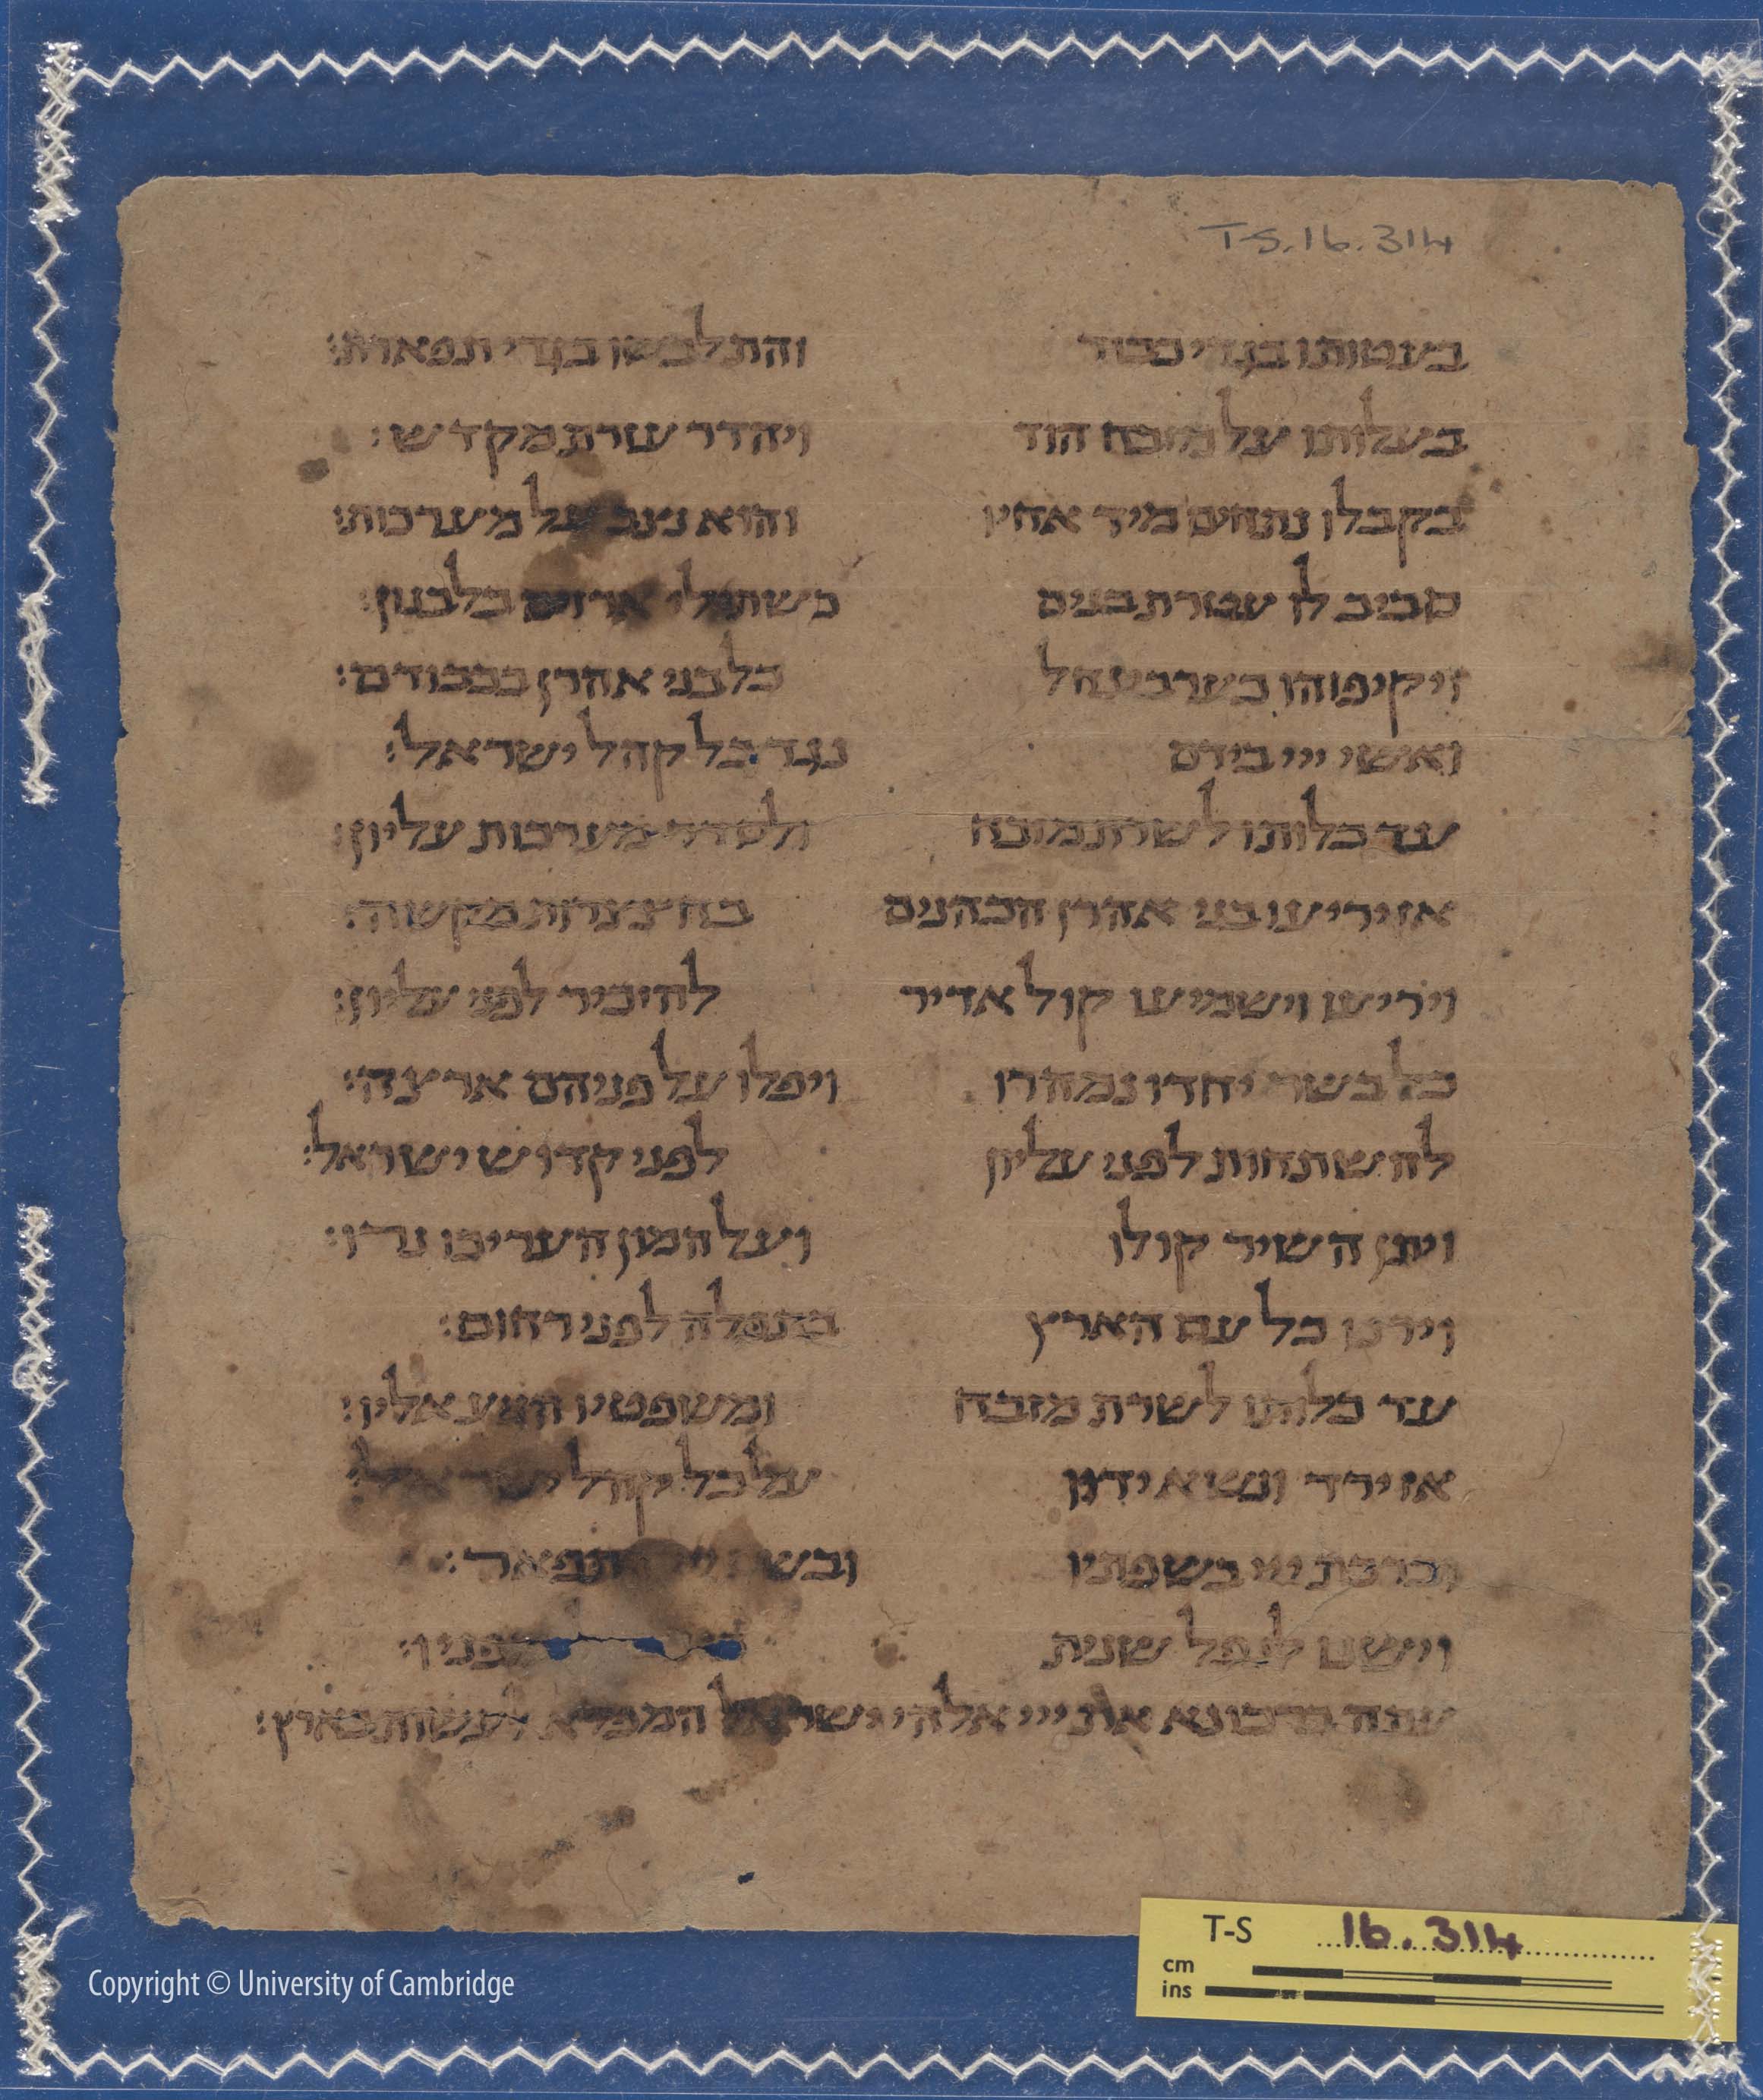 T-S.16.314
בעטותו בגדי כבוד והתלבשו בגדי תפארת:
בעלותו על מזבח הוד ויהדר עזרת מקדש:
בקבלו נתחים מיד אחיו והוא נצב על מערכות:
סביב לו עטרת בנים כשתילי ארזים בלבנון:
ויקיפוהו כערבי נחל כל בני אהרן בכבודם:
ואשי ייי בידם נגד כל קהל ישראל:
עד כלותו לשרת מזבח ולסדר מערכות עליון:
אז יריעו בני אהרן הכהנים בחצצרות מקשה:
ויריעו וישמיעו קול אדיר להזכיר לפני עליון:
כל בשר יחדו נמהרו ויפלו על פניהם ארצה:
להשתחות לפני עליון לפני קדוש ישראל:
ויתן השיר קולו ועל המון העריכו נרו:
וירנו כל עם הארץ בתפלה לפני רחום:
עד כלותו לשרת מזבח ומשפטיו הגיע אליו:
אז ירד ונשא ידיו על כל קהל ישראל:
וברכת ייי בשפתיו ובשם ייי התפאר:
וישנו לנפל שנית מפניו:
עתה ברכו נא את ייי אלהי ישראל המפלא לעשות בארץ:
T-S 16.314
cm
ins
Copyright © University of Cambridge